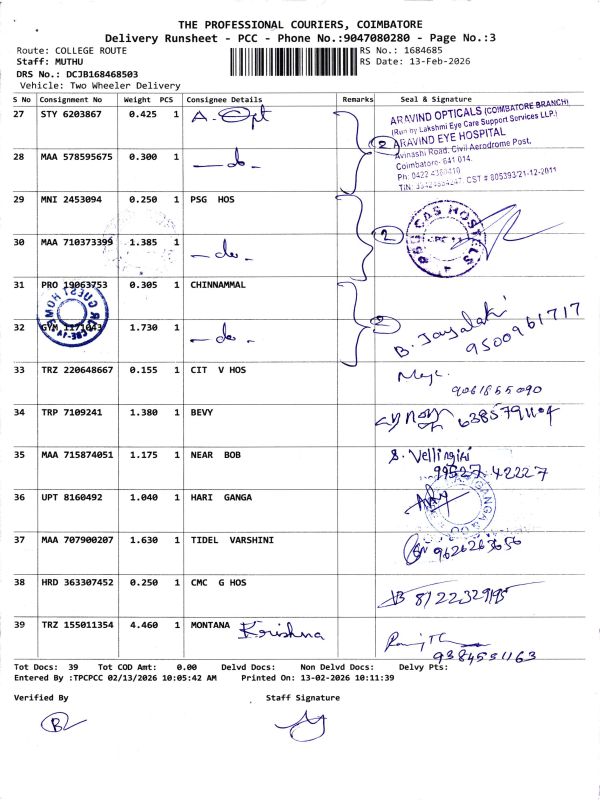 THE PROFESSIONAL COURIERS, COIMBATORE
Delivery Runsheet - PCC - Phone No.:9047080280 - Page No.:3
Route: COLLEGE ROUTE
RS No.: 1684685
Staff: MUTHU
RS Date: 13-Feb-2026
DRS No.: DCJB168468503
Vehicle: Two Wheeler Delivery
S No Consignment No Weight PCS Consignee Details Remarks Seal & Signature
27 STY 6203867 0.425 1 A. Opt
ARAVIND OPTICALS (COIMBATORE BRANCH)
(Run by Lakshmi Eye Care Support Services LLP.)
2 ARAVIND EYE HOSPITAL
Avinashi Road, Civil Aerodrome Post,
Coimbatore- 641 014.
Ph: 0422 4360410
CST # 805393/21-12-2011
28 MAA 578595675 0.300 1 - do -
29 MNI 2453094 0.250 1 PSG HOS
2
PSG CAS HOSTELS
30 MAA 710373399 1.385 1 - do -
31 PRO 19063753 0.305 1 CHINNAMMAL
2
32 GYM 1171043 1.730 1 - do -
GUEST HOME
9500961717
33 TRZ 220648667 0.155 1 CIT V HOS
9061855090
34 TRP 7109241 1.380 1 BEVY
6385791104
35 MAA 715874051 1.175 1 NEAR BOB
S. Vellingiri
99527 42227
36 UPT 8160492 1.040 1 HARI GANGA
37 MAA 707900207 1.630 1 TIDEL VARSHINI
9626263656
38 HRD 363307452 0.250 1 CMC G HOS
39 TRZ 155011354 4.460 1 MONTANA Krishna
9384551163
Tot Docs: 39 Tot COD Amt: 0.00 Delvd Docs: Non Delvd Docs: Delvy Pts:
Entered By :TPCPCC 02/13/2026 10:05:42 AM Printed On: 13-02-2026 10:11:39
Verified By Staff Signature